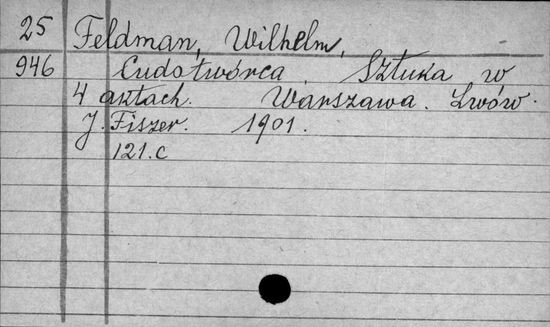 25 Feldman, Wilhelm,
946 Cudotwórca. Sztuka w
4 aktach. Warszawa. Lwów.
J. Fiszer. 1901.
121.c